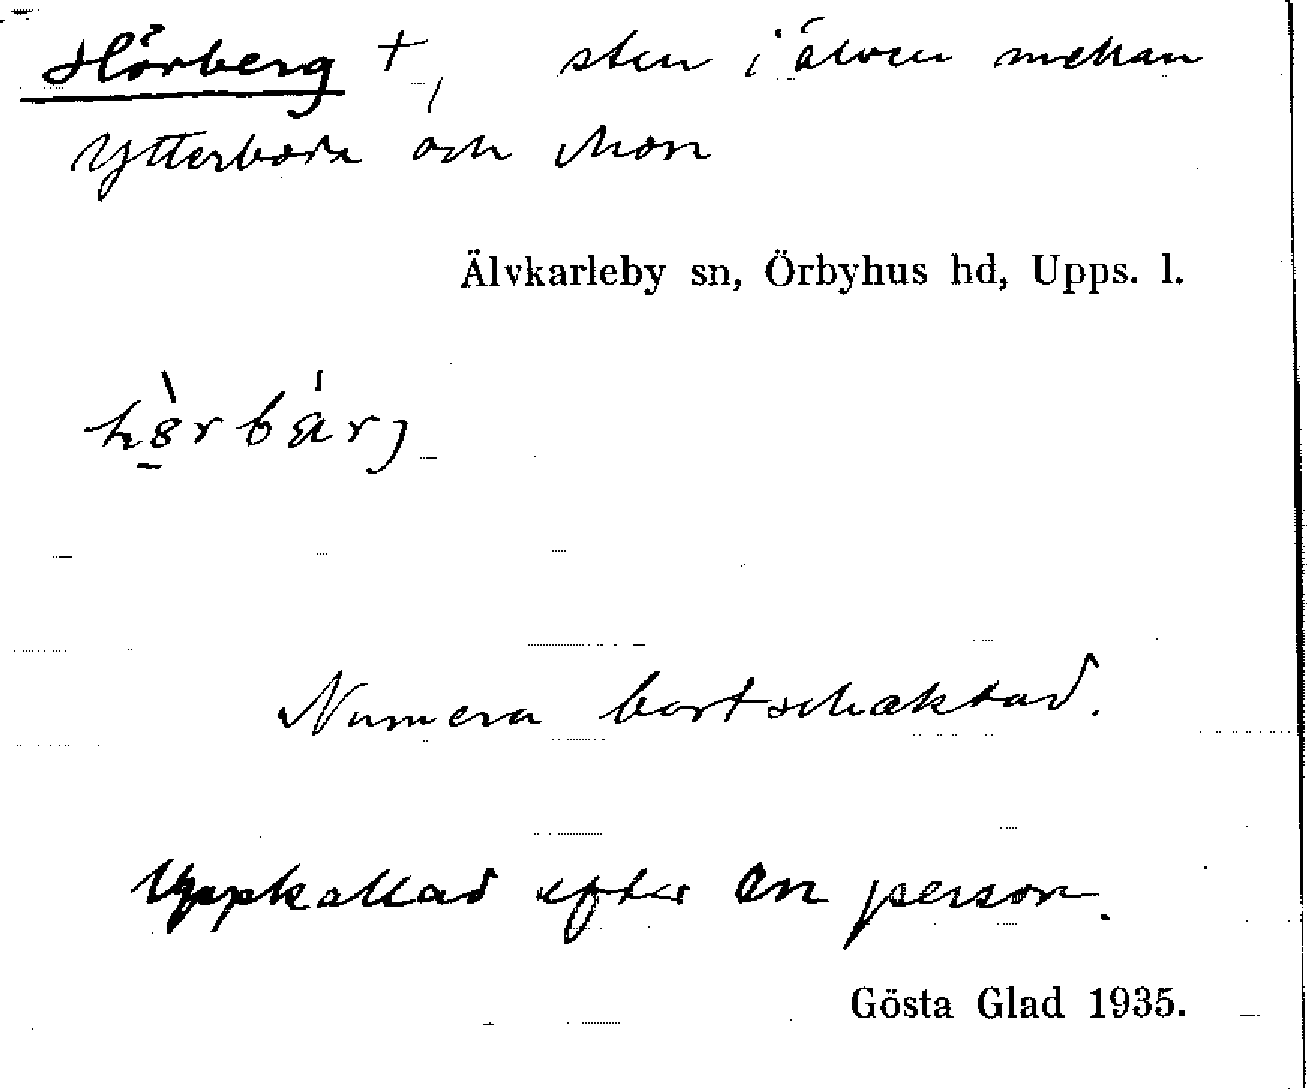 Hörberg +, sten i älven mellan
Ytterboda och Mon
Älvkarleby sn, Örbyhus hd, Upps. l.
Numera bortschaktad.
Uppkallad efter en person.
Gösta Glad 1935.